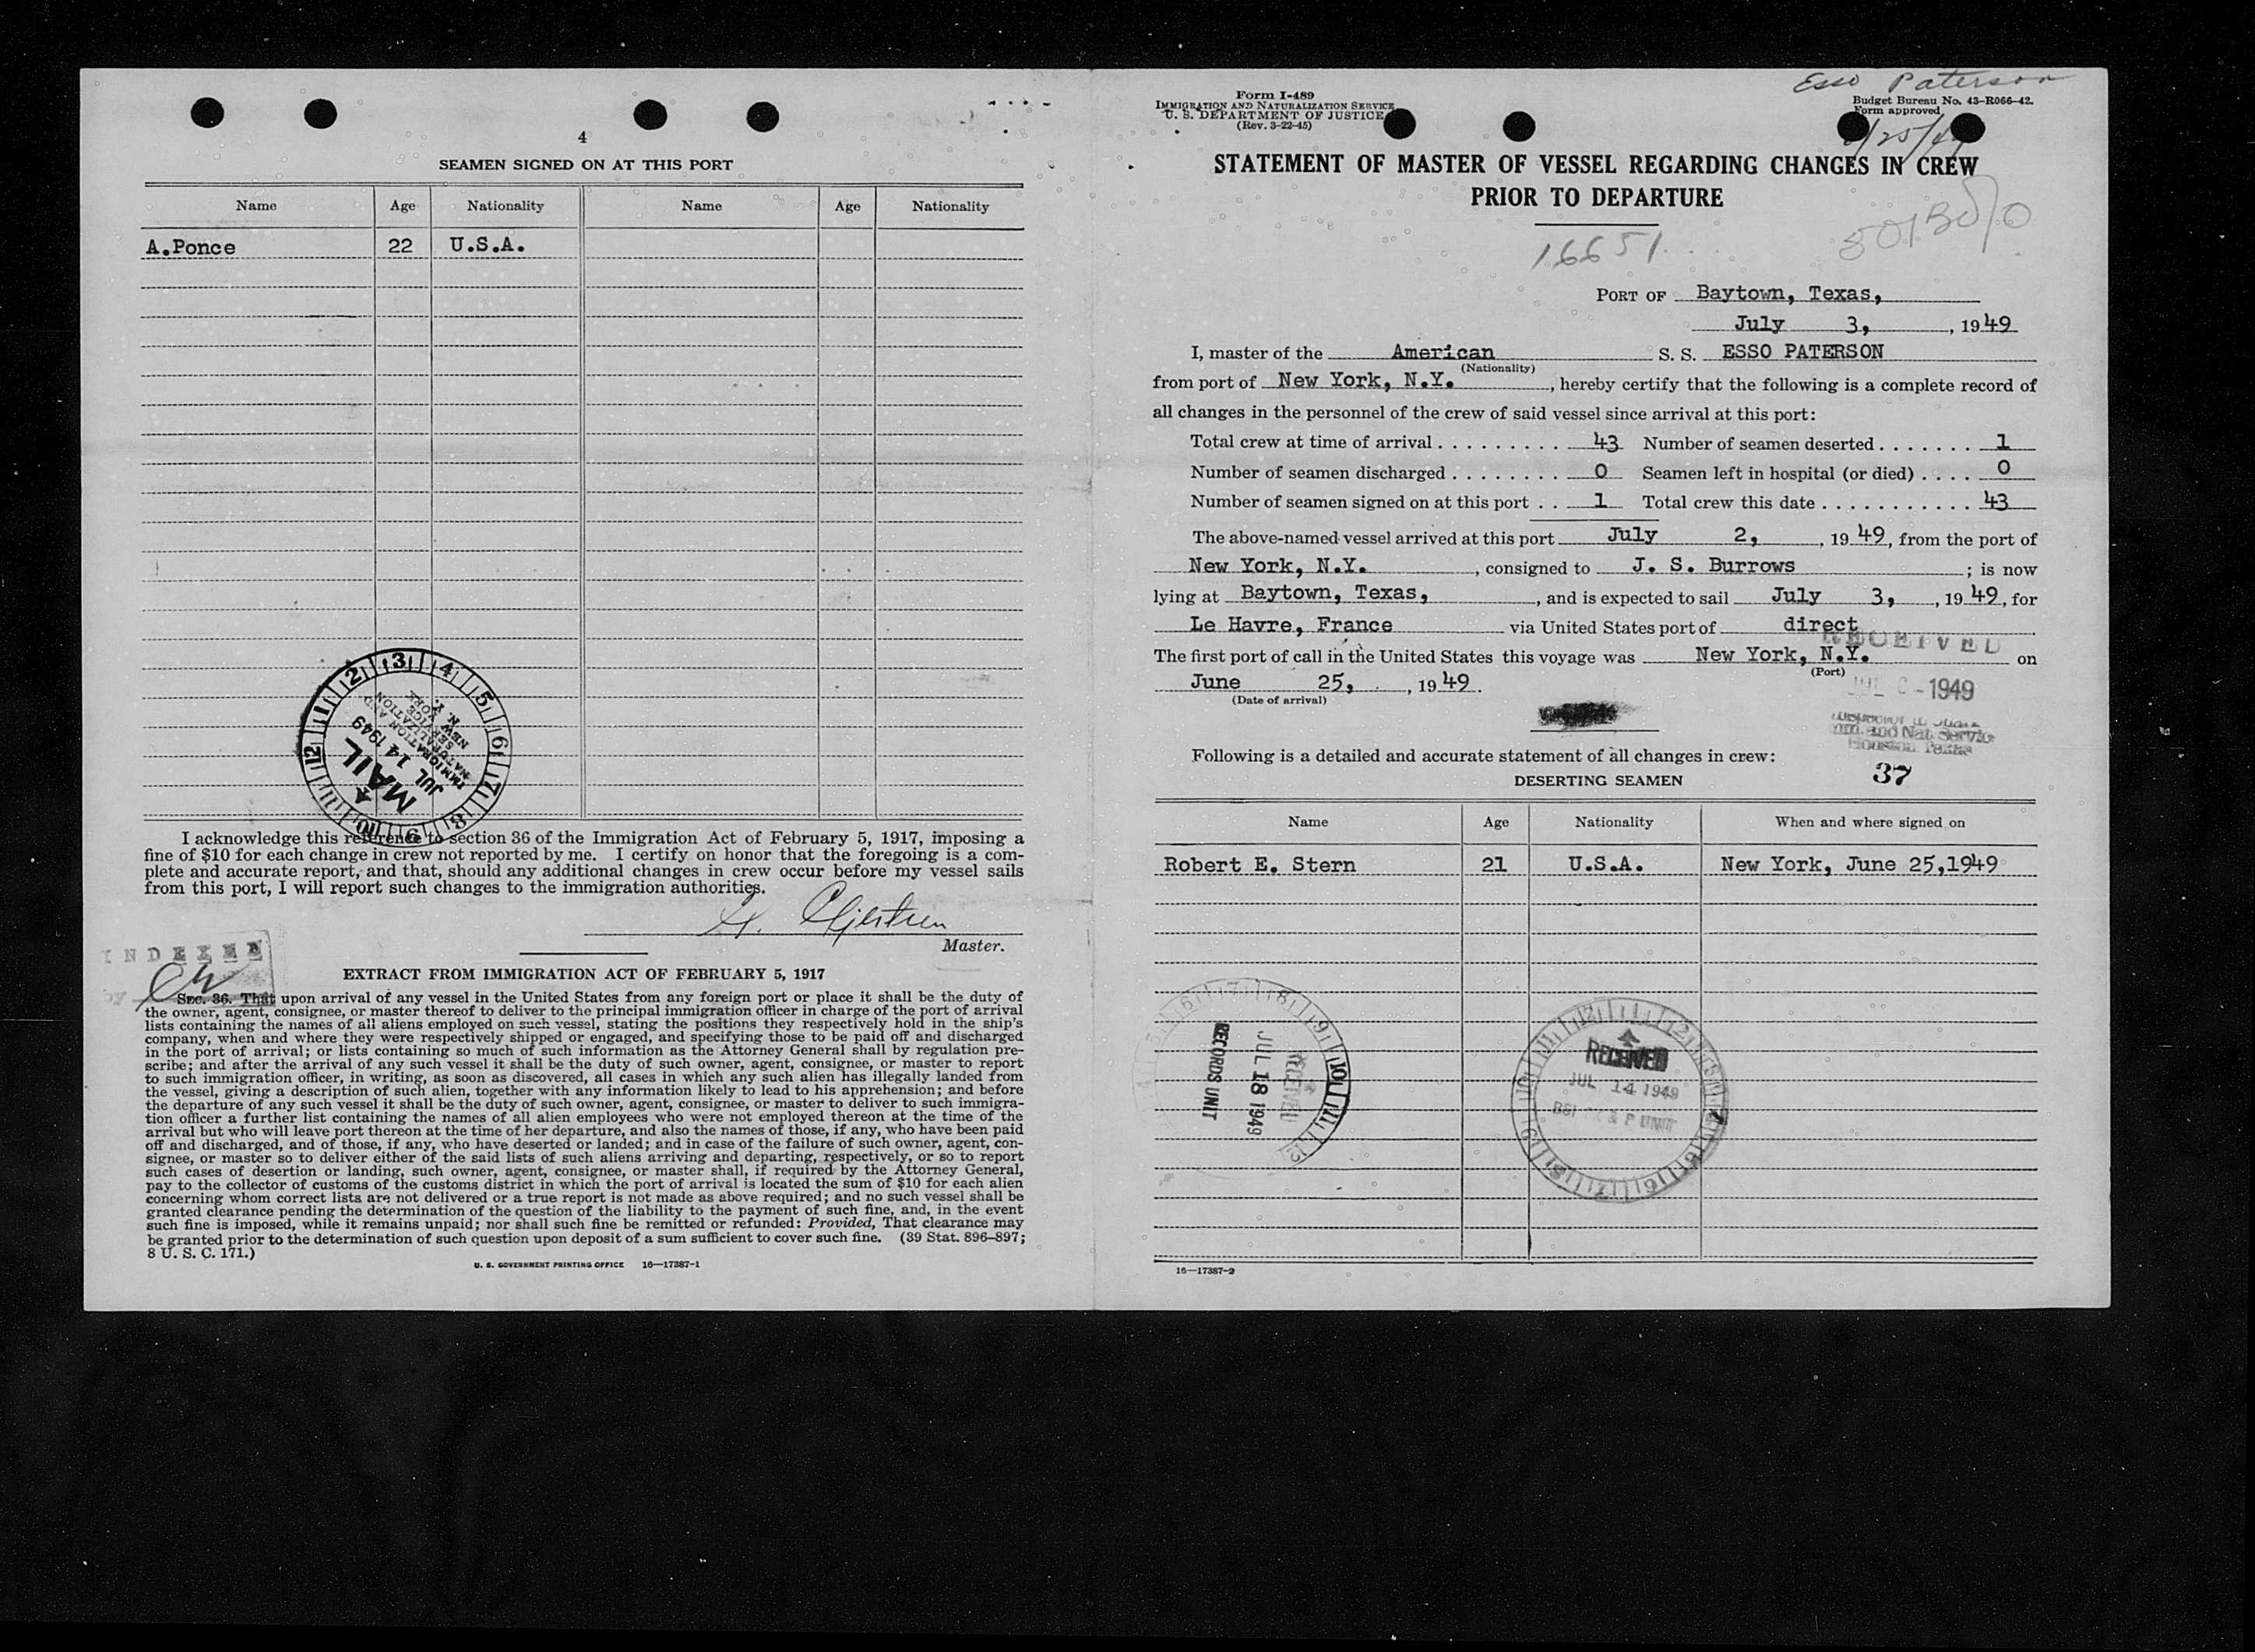 4
SEAMEN SIGNED ON AT THIS PORT
Name Age Nationality Name Age Nationality
A.Ponce 22 U.S.A.
MAIL
JUL 14 1949
IMMIGRATION AND
NATURALIZATION
SERVICE
NEW YORK
N. Y.
I acknowledge this reference to section 36 of the Immigration Act of February 5, 1917, imposing a
fine of $10 for each change in crew not reported by me. I certify on honor that the foregoing is a com-
plete and accurate report, and that, should any additional changes in crew occur before my vessel sails
from this port, I will report such changes to the immigration authorities.
Master.
INDEXED
by
EXTRACT FROM IMMIGRATION ACT OF FEBRUARY 5, 1917
SEC. 36. That upon arrival of any vessel in the United States from any foreign port or place it shall be the duty of
the owner, agent, consignee, or master thereof to deliver to the principal immigration officer in charge of the port of arrival
lists containing the names of all aliens employed on such vessel, stating the positions they respectively hold in the ship's
company, when and where they were respectively shipped or engaged, and specifying those to be paid off and discharged
in the port of arrival; or lists containing so much of such information as the Attorney General shall by regulation pre-
scribe; and after the arrival of any such vessel it shall be the duty of such owner, agent, consignee, or master to report
to such immigration officer, in writing, as soon as discovered, all cases in which any such alien has illegally landed from
the vessel, giving a description of such alien, together with any information likely to lead to his apprehension; and before
the departure of any such vessel it shall be the duty of such owner, agent, consignee, or master to deliver to such immigra-
tion officer a further list containing the names of all alien employees who were not employed thereon at the time of the
arrival but who will leave port thereon at the time of her departure, and also the names of those, if any, who have been paid
off and discharged, and of those, if any, who have deserted or landed; and in case of the failure of such owner, agent, con-
signee, or master so to deliver either of the said lists of such aliens arriving and departing, respectively, or so to report
such cases of desertion or landing, such owner, agent, consignee, or master shall, if required by the Attorney General,
pay to the collector of customs of the customs district in which the port of arrival is located the sum of $10 for each alien
concerning whom correct lists are not delivered or a true report is not made as above required; and no such vessel shall be
granted clearance pending the determination of the question of the liability to the payment of such fine, and, in the event
such fine is imposed, while it remains unpaid; nor shall such fine be remitted or refunded: Provided, That clearance may
be granted prior to the determination of such question upon deposit of a sum sufficient to cover such fine. (39 Stat. 896–897;
8 U. S. C. 171.)
U. S. GOVERNMENT PRINTING OFFICE 16—17387-1
Esso Paterson
Form I-489
IMMIGRATION AND NATURALIZATION SERVICE
U. S. DEPARTMENT OF JUSTICE
(Rev. 3-22-45)
Budget Bureau No. 43-R066-42.
Form approved
STATEMENT OF MASTER OF VESSEL REGARDING CHANGES IN CREW
PRIOR TO DEPARTURE
16651
PORT OF Baytown, Texas,
July 3, , 1949
I, master of the American S. S. ESSO PATERSON
(Nationality)
from port of New York, N.Y. , hereby certify that the following is a complete record of
all changes in the personnel of the crew of said vessel since arrival at this port:
Total crew at time of arrival . . . . . . . . . . 43 Number of seamen deserted . . . . . . . 1
Number of seamen discharged . . . . . . . . 0 Seamen left in hospital (or died) . . . . 0
Number of seamen signed on at this port . . 1 Total crew this date . . . . . . . . . . . 43
The above-named vessel arrived at this port July 2, , 1949, from the port of
New York, N.Y. , consigned to J. S. Burrows ; is now
lying at Baytown, Texas, , and is expected to sail July 3, , 1949, for
Le Havre, France via United States port of direct
The first port of call in the United States this voyage was New York, N.Y. on
(Port)
June 25, , 1949.
(Date of arrival)
RECEIVED
1949
Houston Texas
37
Following is a detailed and accurate statement of all changes in crew:
DESERTING SEAMEN
Name Age Nationality When and where signed on
Robert E. Stern 21 U.S.A. New York, June 25,1949
RECEIVED
JUL 18 1949
RECORDS UNIT
RECEIVED
JUL 14 1949
16—17387-2